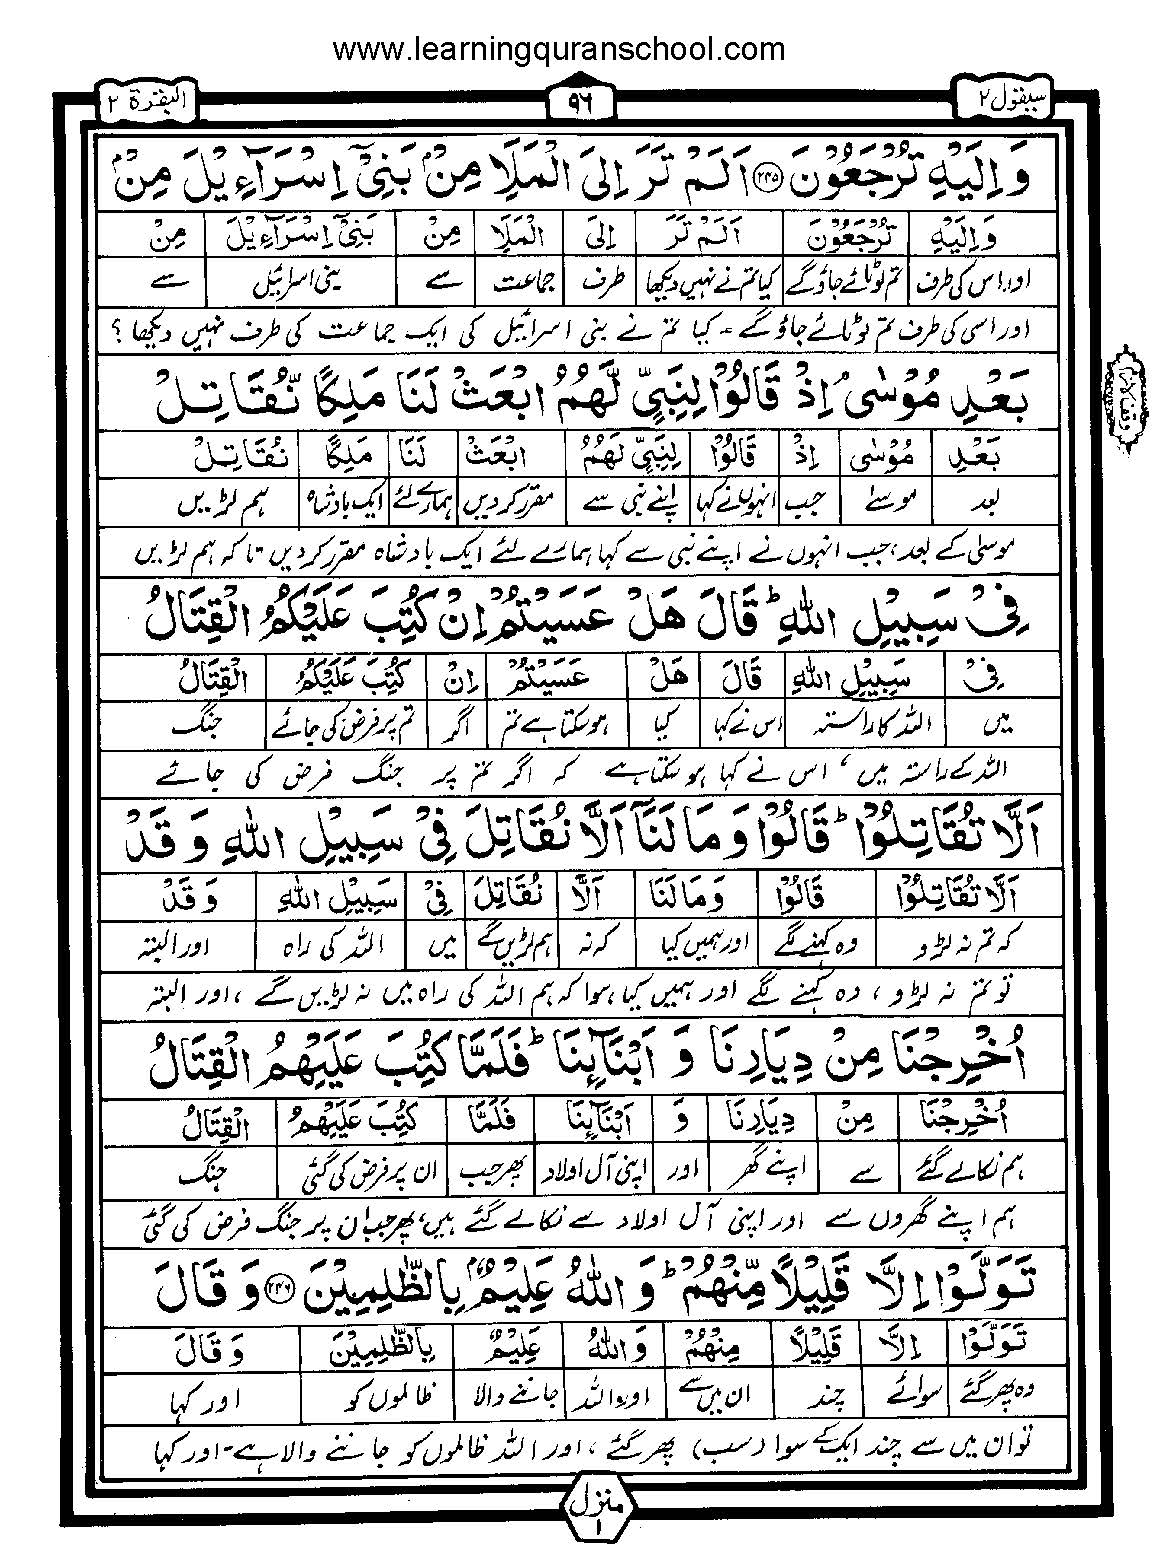 www.learningquranschool.com
سيقول ٢ ٩٦ البقرة ٢
وَاِلَيْهِ تُرْجَعُوْنَ ﴿٢٤٥﴾ اَلَمْ تَرَ اِلَى الْمَلَاِ مِنْۢ بَنِیْۤ اِسْرَآءِيْلَ مِنْۢ
وَاِلَيْهِ تُرْجَعُوْنَ اَلَمْ تَرَ اِلَى الْمَلَاِ مِنْ بَنِیْۤ اِسْرَآءِيْلَ مِنْ
اور اس کی طرف تم لوٹائے جاؤ گے کیا تم نے نہیں دیکھا طرف جماعت سے بنی اسرائیل سے
اور اسی کی طرف تم لوٹائے جاؤ گے - کیا تم نے بنی اسرائیل کی ایک جماعت کی طرف نہیں دیکھا ؟
بَعْدِ مُوْسٰیۘ اِذْ قَالُوْا لِنَبِیٍّ لَّهُمُ ابْعَثْ لَنَا مَلِكًا نُّقَاتِلْ
بَعْدِ مُوْسٰی اِذْ قَالُوْا لِنَبِیٍّ لَهُمُ ابْعَثْ لَنَا مَلِكًا نُقَاتِلْ
بعد موسےٰ جب انہوں نے کہا اپنے نبی سے مقرر کردیں ہمارے لئے ایک بادشاہ ہم لڑیں
موسیٰ کے بعد، جب انہوں نے اپنے نبی سے کہا ہمارے لئے ایک بادشاہ مقرر کردیں تاکہ ہم لڑیں
وقف لازم
فِیْ سَبِيْلِ اللّٰهِؕ قَالَ هَلْ عَسَيْتُمْ اِنْ كُتِبَ عَلَيْكُمُ الْقِتَالُ
فِیْ سَبِيْلِ اللّٰهِ قَالَ هَلْ عَسَيْتُمْ اِنْ كُتِبَ عَلَيْكُمُ الْقِتَالُ
میں اللہ کا راستہ اس نے کہا کیا ہو سکتا ہے تم اگر تم پر فرض کی جائے جنگ
اللہ کے راستہ میں، اس نے کہا ہو سکتا ہے کہ اگر تم پر جنگ فرض کی جائے
اَلَّا تُقَاتِلُوْاؕ قَالُوْا وَمَا لَنَاۤ اَلَّا نُقَاتِلَ فِیْ سَبِيْلِ اللّٰهِ وَقَدْ
اَلَّا تُقَاتِلُوْا قَالُوْا وَمَا لَنَا اَلَّا نُقَاتِلَ فِیْ سَبِيْلِ اللّٰهِ وَقَدْ
کہ تم نہ لڑو وہ کہنے لگے اور ہمیں کیا کہ نہ ہم لڑیں گے میں اللہ کی راہ اور البتہ
تو تم نہ لڑو، وہ کہنے لگے اور ہمیں کیا ہوا کہ ہم اللہ کی راہ میں نہ لڑیں گے، اور البتہ
اُخْرِجْنَا مِنْ دِيَارِنَا وَ اَبْنَآئِنَاؕ فَلَمَّا كُتِبَ عَلَيْهِمُ الْقِتَالُ
اُخْرِجْنَا مِنْ دِيَارِنَا وَ اَبْنَآئِنَا فَلَمَّا كُتِبَ عَلَيْهِمُ الْقِتَالُ
ہم نکالے گئے سے اپنے گھر اور اپنی آل اولاد پھر جب ان پر فرض کی گئی جنگ
ہم اپنے گھروں سے اور اپنی آل اولاد سے نکالے گئے ہیں، پھر جب ان پر جنگ فرض کی گئی
تَوَلَّوْا اِلَّا قَلِيْلًا مِّنْهُمْؕ وَاللّٰهُ عَلِيْمٌۢ بِالظّٰلِمِيْنَ ﴿٢٤٦﴾ وَقَالَ
تَوَلَّوْا اِلَّا قَلِيْلًا مِنْهُمْ وَاللّٰهُ عَلِيْمٌ بِالظّٰلِمِيْنَ وَقَالَ
وہ پھر گئے سوائے چند ان میں سے اور اللہ جاننے والا ظالموں کو اور کہا
تو ان میں سے چند ایک کے سوا (سب) پھر گئے، اور اللہ ظالموں کو جاننے والا ہے - اور کہا
منزل ١